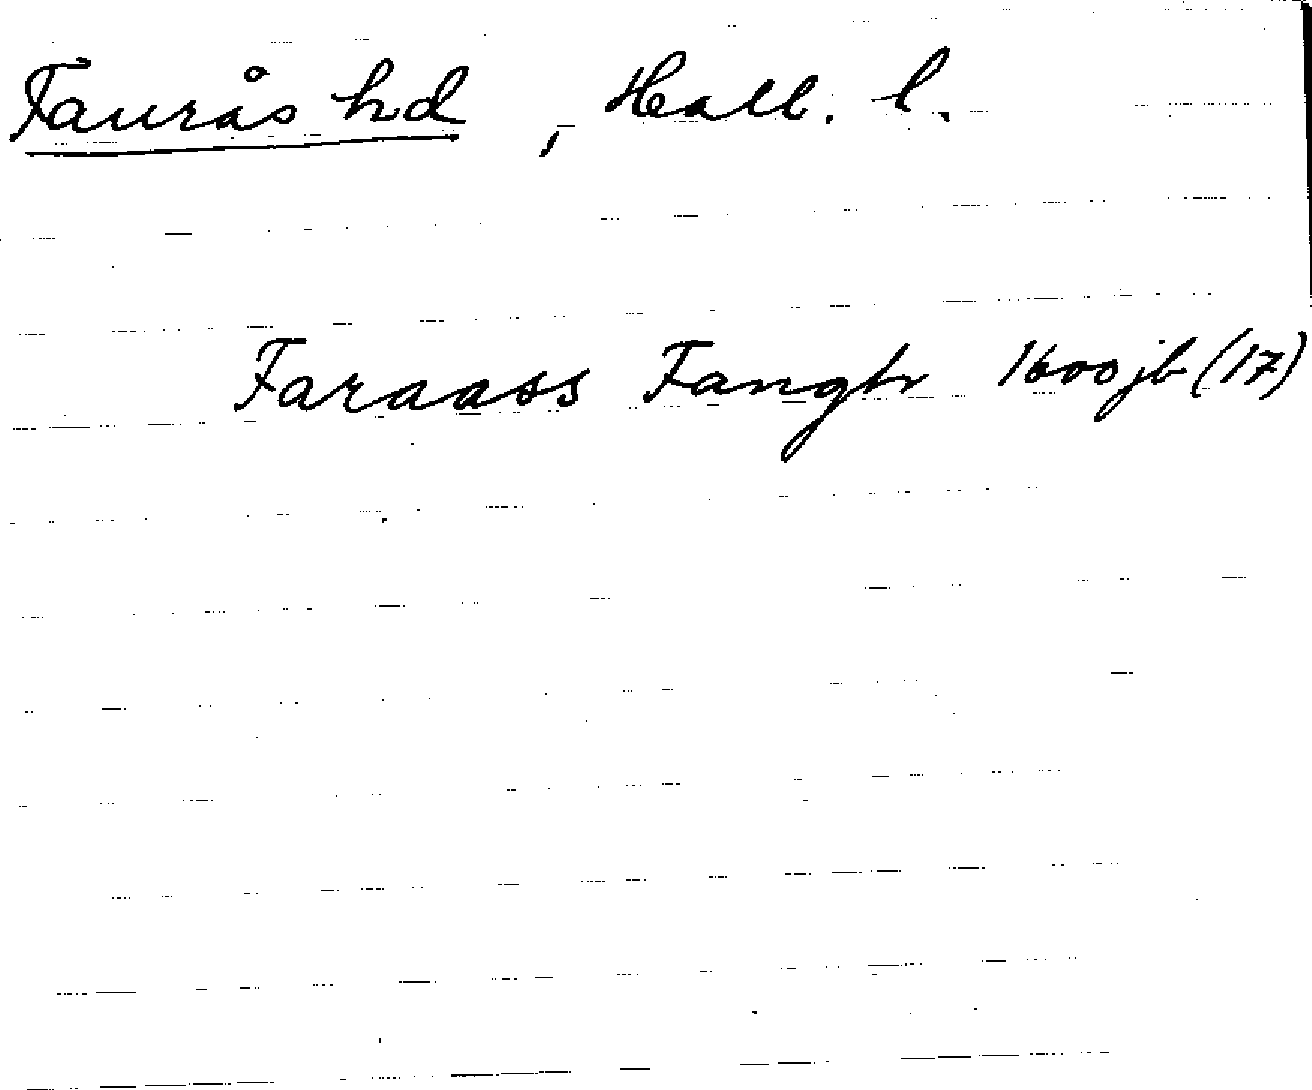 Faurås hd, Hall. l.
Faraass Fangtr 1600 jb (17)